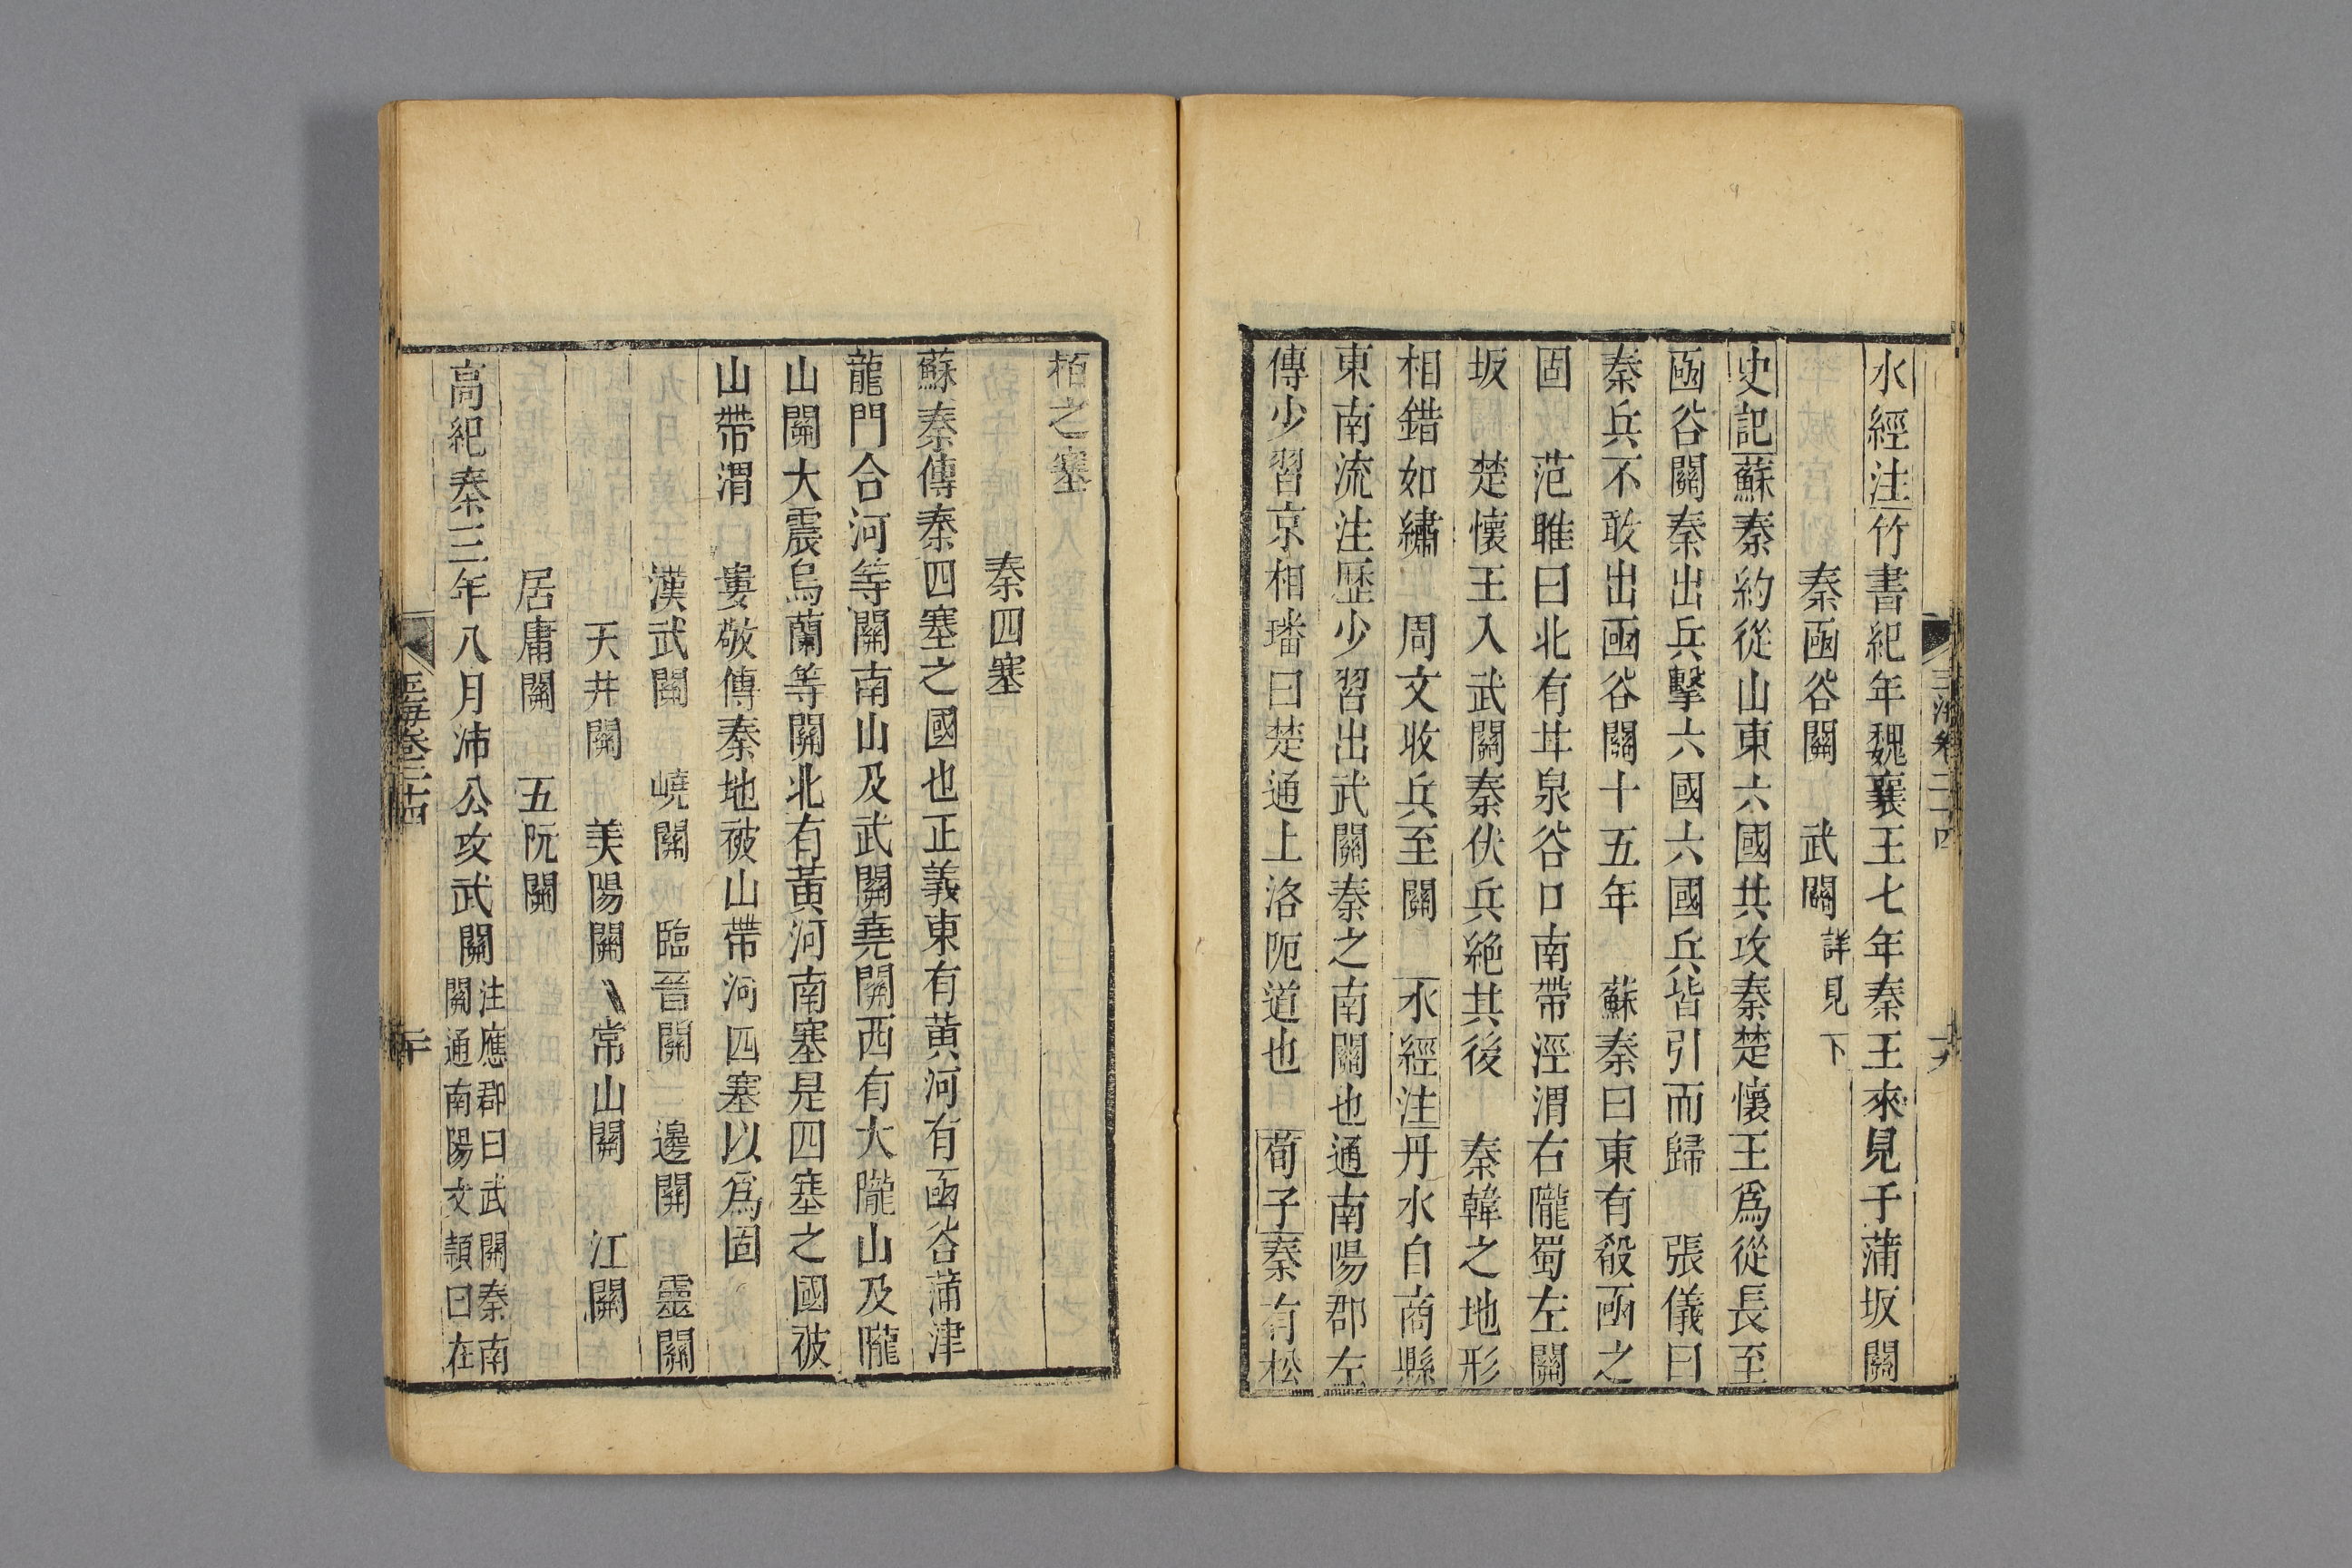 水經注竹書紀年魏襄王七年秦王來見于蒲坂關
秦函谷關　武關詳見下
史記蘇秦約從山東六國共攻秦楚懷王爲從長至
函谷關秦出兵擊六國六國兵皆引而歸　張儀曰
秦兵不敢出函谷關十五年　蘇秦曰東有殽函之
固　范雎曰北有甘泉谷口南帶涇渭右隴蜀左關
坂　楚懷王入武關秦伏兵絶其後　秦韓之地形
相錯如繡　周文收兵至關　水經注丹水自商縣
東南流注歷少習出武關秦之南關也通南陽郡左
傳少習京相璠曰楚通上洛阨道也　荀子秦有松
栢之塞
秦四塞
蘇秦傳秦四塞之國也正義東有黄河有函谷蒲津
龍門合河等關南山及武關嶤關西有大隴山及隴
山關大震烏蘭等關北有黃河南塞是四塞之國被
山帶渭　婁敬傳秦地被山帶河四塞以爲固
漢武關　嶢關　臨晉關　邊關　靈關
天井關　美陽關　常山關　江關
居庸關　五阮關
高紀秦三年八月沛公攻武關注應郡曰武關秦南
關通南陽文頴曰在